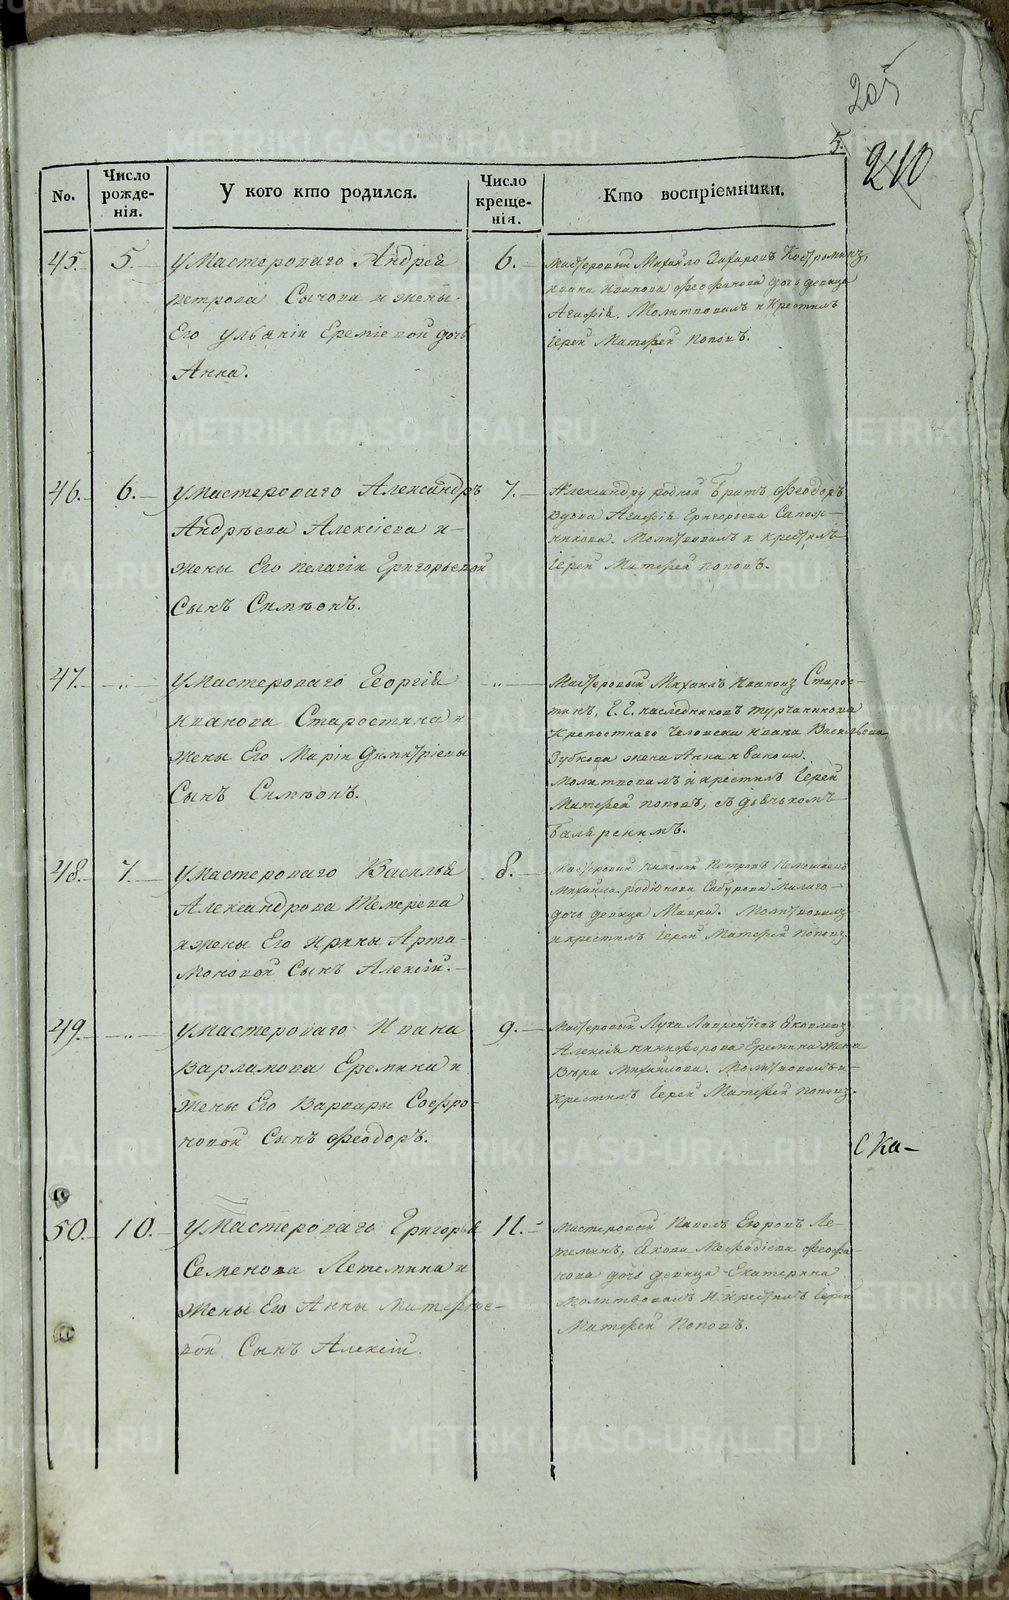 205
5.
210
No.
Число рожденія.
У кого кто родился.
Число крещенія.
Кто воспріемники.
45. 5. У Мастероваго Андрей
Петрова Сычова и жены
Его Ульяніи Ереміевой дочь
Анна.
6. Мастеровый Михайло Захаровъ Костроминъ,
Ивана Иванова Феофанова дочь девица
Агафія. Молитвовалъ и Крестилъ
іерей Матфей Поповъ.
46. 6. У Мастероваго Александръ
Андрѣева Алексіева и
жены Его Пелагіи Григорьевой
Сынъ Симѣонъ.
7. Александру родной братъ Феодоръ
Вдова Агафія Григорьева Сапож-
никова. Молитвовалъ и крестилъ
іерей Матфей Поповъ.
47. -"- У Мастероваго Георгія
Иванова Старостина и
жены Его Маріи Димитріевы
Сынъ Симѣонъ.
-"- Мастеровый Михаилъ Ивановъ Старос-
тинъ, Г. Г. наследниковъ Турчанинова
Крепостнаго Человека Ивана Васильева
Зубкова жена Анна Иванова.
Молитвовалъ и крестилъ Іерей
Матфей Поповъ, съ дьячкомъ

48. 7. У Мастероваго Василья
Александрова Темерева
и жены Его Ирины Арта-
моновой Сынъ Алексій.
8. Мастеровый Николай Петровъ
Михайла Родіонова Сабурова
дочь девица Мавра. Молитвовалъ
и крестилъ Іерей Матфей Поповъ.
49. -"- У Мастероваго Ивана
Варламова Еремина и
жены Его Варвары Софро-
новой Сынъ Феодоръ.
9. Мастеровый Лука Лаврентіевъ Яковлевъ
Алексія Никифорова Еремина жена
Вѣра Михайлова. Молитвовалъ и
Крестилъ Іерей Матфей Поповъ.
Ска-
50. 10. У Мастероваго Григорья
Семенова Летемина и
жены Его Анны Матфѣе-
вой Сынъ Алексій.
11. Мастеровый Павелъ Егоровъ Ле-
теминъ, Якова Мефодіева Феофа-
нова дочь девица Екатерина
Молитвовалъ и крестилъ Іерей
Матфей Поповъ.
METRIKI.GASO-URAL.RU